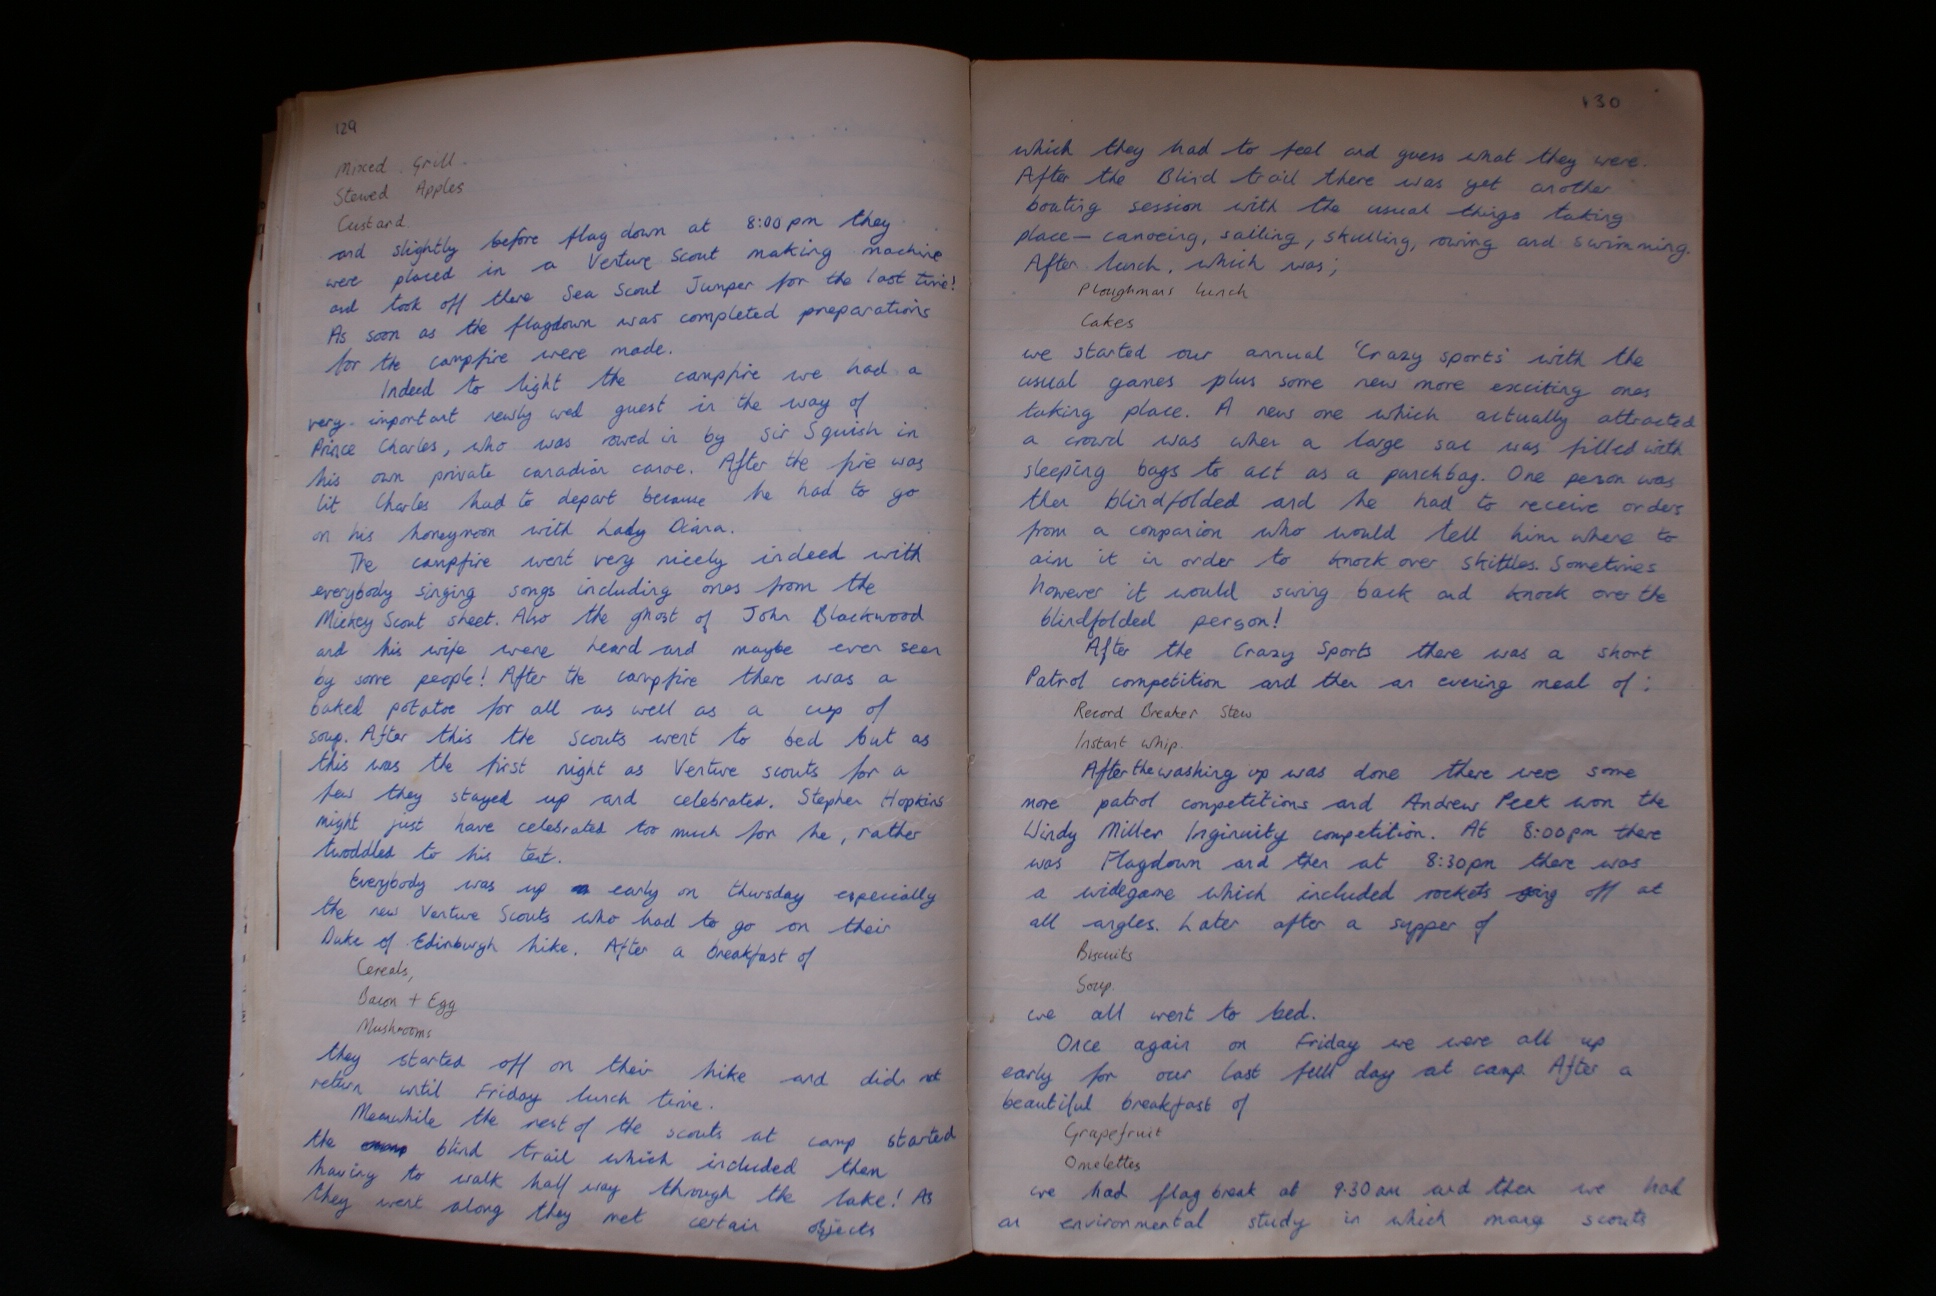 129
Mixed Grill.
Stewed Apples
Custard
and slightly before flag down at 8:00pm they
were placed in a Venture Scout making machine
and took off there Sea Scout Jumper for the last time!
As soon as the flagdown was completed preparations
for the campfire were made.
Indeed to light the campfire we had a
very important newly wed guest in the way of
Prince Charles, who was rowed in by Sir Squish in
his own private canadian canoe. After the fire was
lit Charles had to depart because he had to go
on his honeymoon with Lady Diana.
The campfire went very nicely indeed with
everybody singing songs including ones from the
Mickey Scout sheet. Also the ghost of John Blackwood
and his wife were heard and maybe even seen
by some people! After the campfire there was a
baked potatoe for all as well as a cup of
soup. After this the scouts went to bed but as
this was the first night as Venture scouts for a
few they stayed up and celebrated. Stephen Hopkins
might just have celebrated too much for he, rather
twoddled to his tent.
Everybody was up early on thursday especially
the new Venture Scouts who had to go on their
Duke of Edinburgh hike. After a breakfast of
Cereals,
Bacon + Egg
Mushrooms
they started off on their hike and did not
return until Friday lunch time.
Meanwhile the rest of the scouts at camp started
the blind trail which included them
having to walk half way through the lake! As
they went along they met certain objects
130
which they had to feel and guess what they were.
After the Blind trail there was yet another
boating session with the usual things taking
place – canoeing, sailing, skulling, rowing and swimming.
After lunch, which was;
Ploughmans lunch
Cakes
we started our annual 'Crazy sports' with the
usual games plus some new more exciting ones
taking place. A new one which actually attracted
a crowd was when a large sac was filled with
sleeping bags to act as a punchbag. One person was
then blindfolded and he had to receive orders
from a companion who would tell him where to
aim it in order to knock over skittles. Sometimes
however it would swing back and knock over the
blindfolded person!
After the Crazy Sports there was a short
Patrol competition and then an evening meal of:
Record Breaker Stew
Instant whip.
After the washing up was done there were some
more patrol competitions and Andrew Peek won the
Windy Miller Inginuity competition. At 8:00pm there
was Flagdown and then at 8:30pm there was
a widegame which included rockets going off at
all angles. Later after a supper of
Biscuits
Soup.
we all went to bed.
Once again on Friday we were all up
early for our last full day at camp. After a
beautiful breakfast of
Grapefruit
Omelettes
we had flag break at 9.30am and then we had
an environmental study in which many scouts